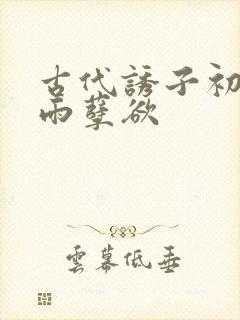 古代誘子初
雨孽欲
雲幕低垂